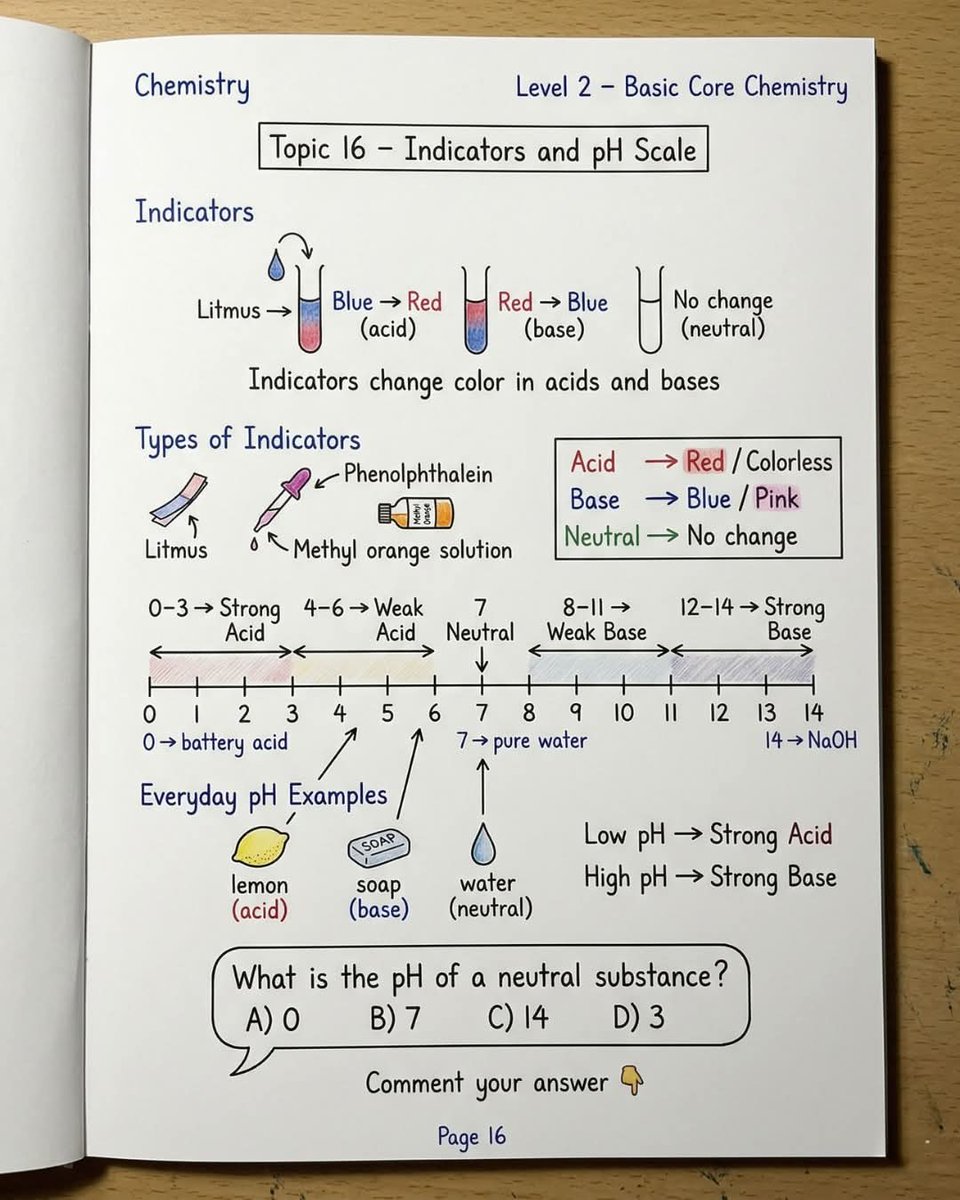 Chemistry
Level 2 – Basic Core Chemistry
Topic 16 – Indicators and pH Scale
Indicators
Litmus →
Blue → Red
(acid)
Red → Blue
(base)
No change
(neutral)
Indicators change color in acids and bases
Types of Indicators
Litmus
Phenolphthalein
Methyl Orange
Methyl orange solution
Acid → Red / Colorless
Base → Blue / Pink
Neutral → No change
0–3 → Strong
Acid
4–6 → Weak
Acid
7
Neutral
8–11 →
Weak Base
12–14 → Strong
Base
0 1 2 3 4 5 6 7 8 9 10 11 12 13 14
0 → battery acid
7 → pure water
14 → NaOH
Everyday pH Examples
SOAP
lemon
(acid)
soap
(base)
water
(neutral)
Low pH → Strong Acid
High pH → Strong Base
What is the pH of a neutral substance?
A) 0 B) 7 C) 14 D) 3
Comment your answer 👇
Page 16